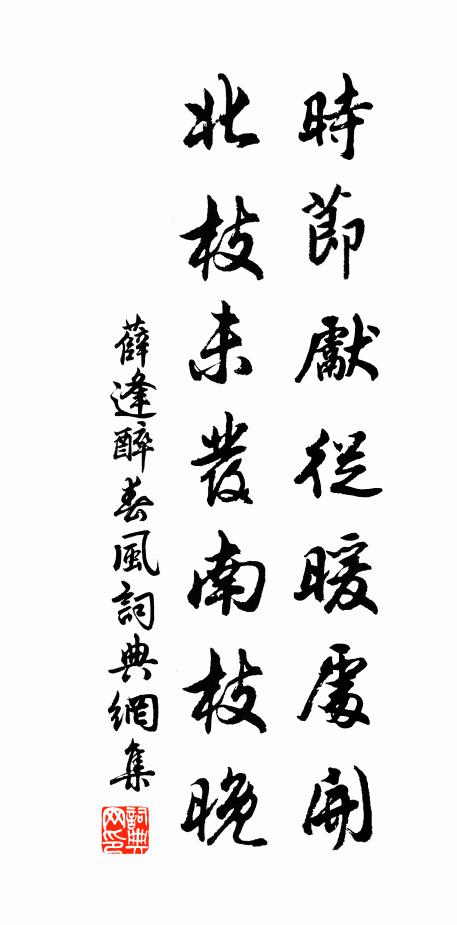 時節獻從暖處開
北枝未發南枝晚
薛逢醉春風詞典網集
詞典网印